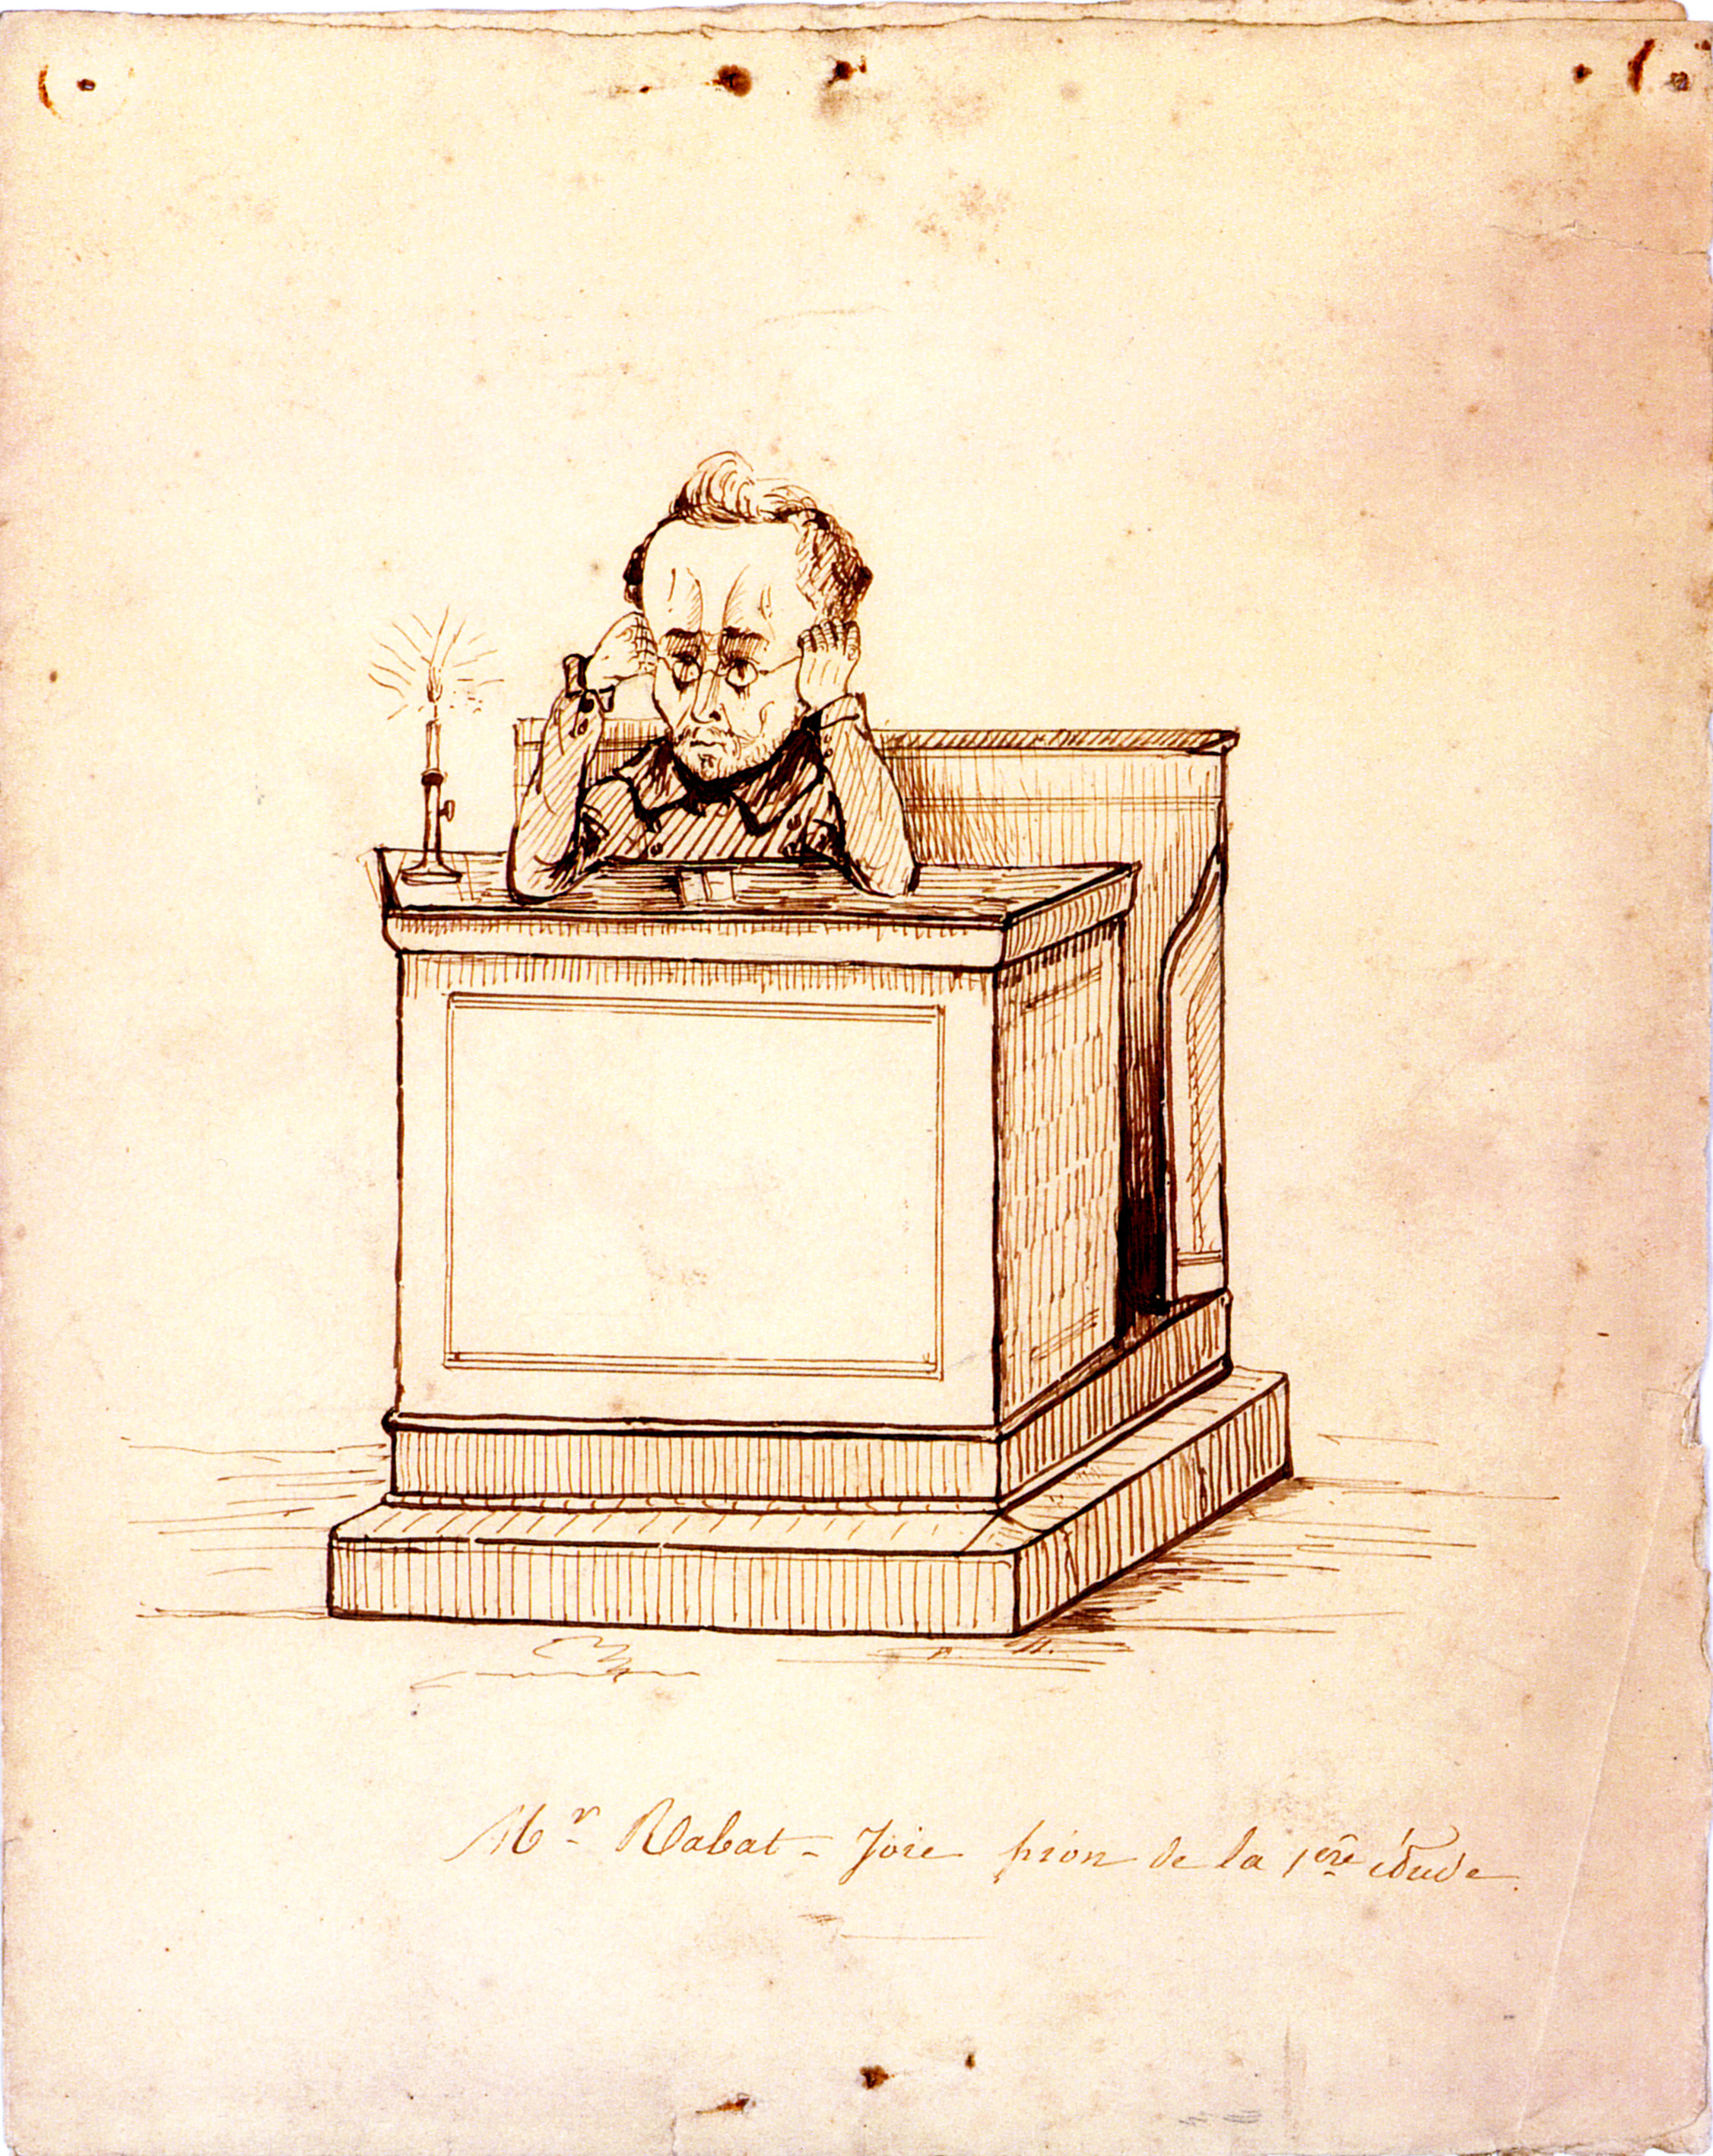 Mr Rabat-Joie pion de la 1ère étude.